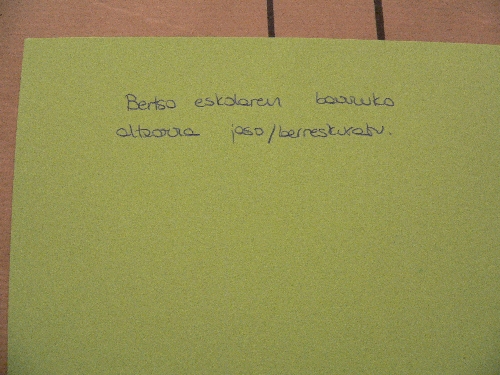 Bertso eskolaren barruko
altxorra jaso/berreskuratu.